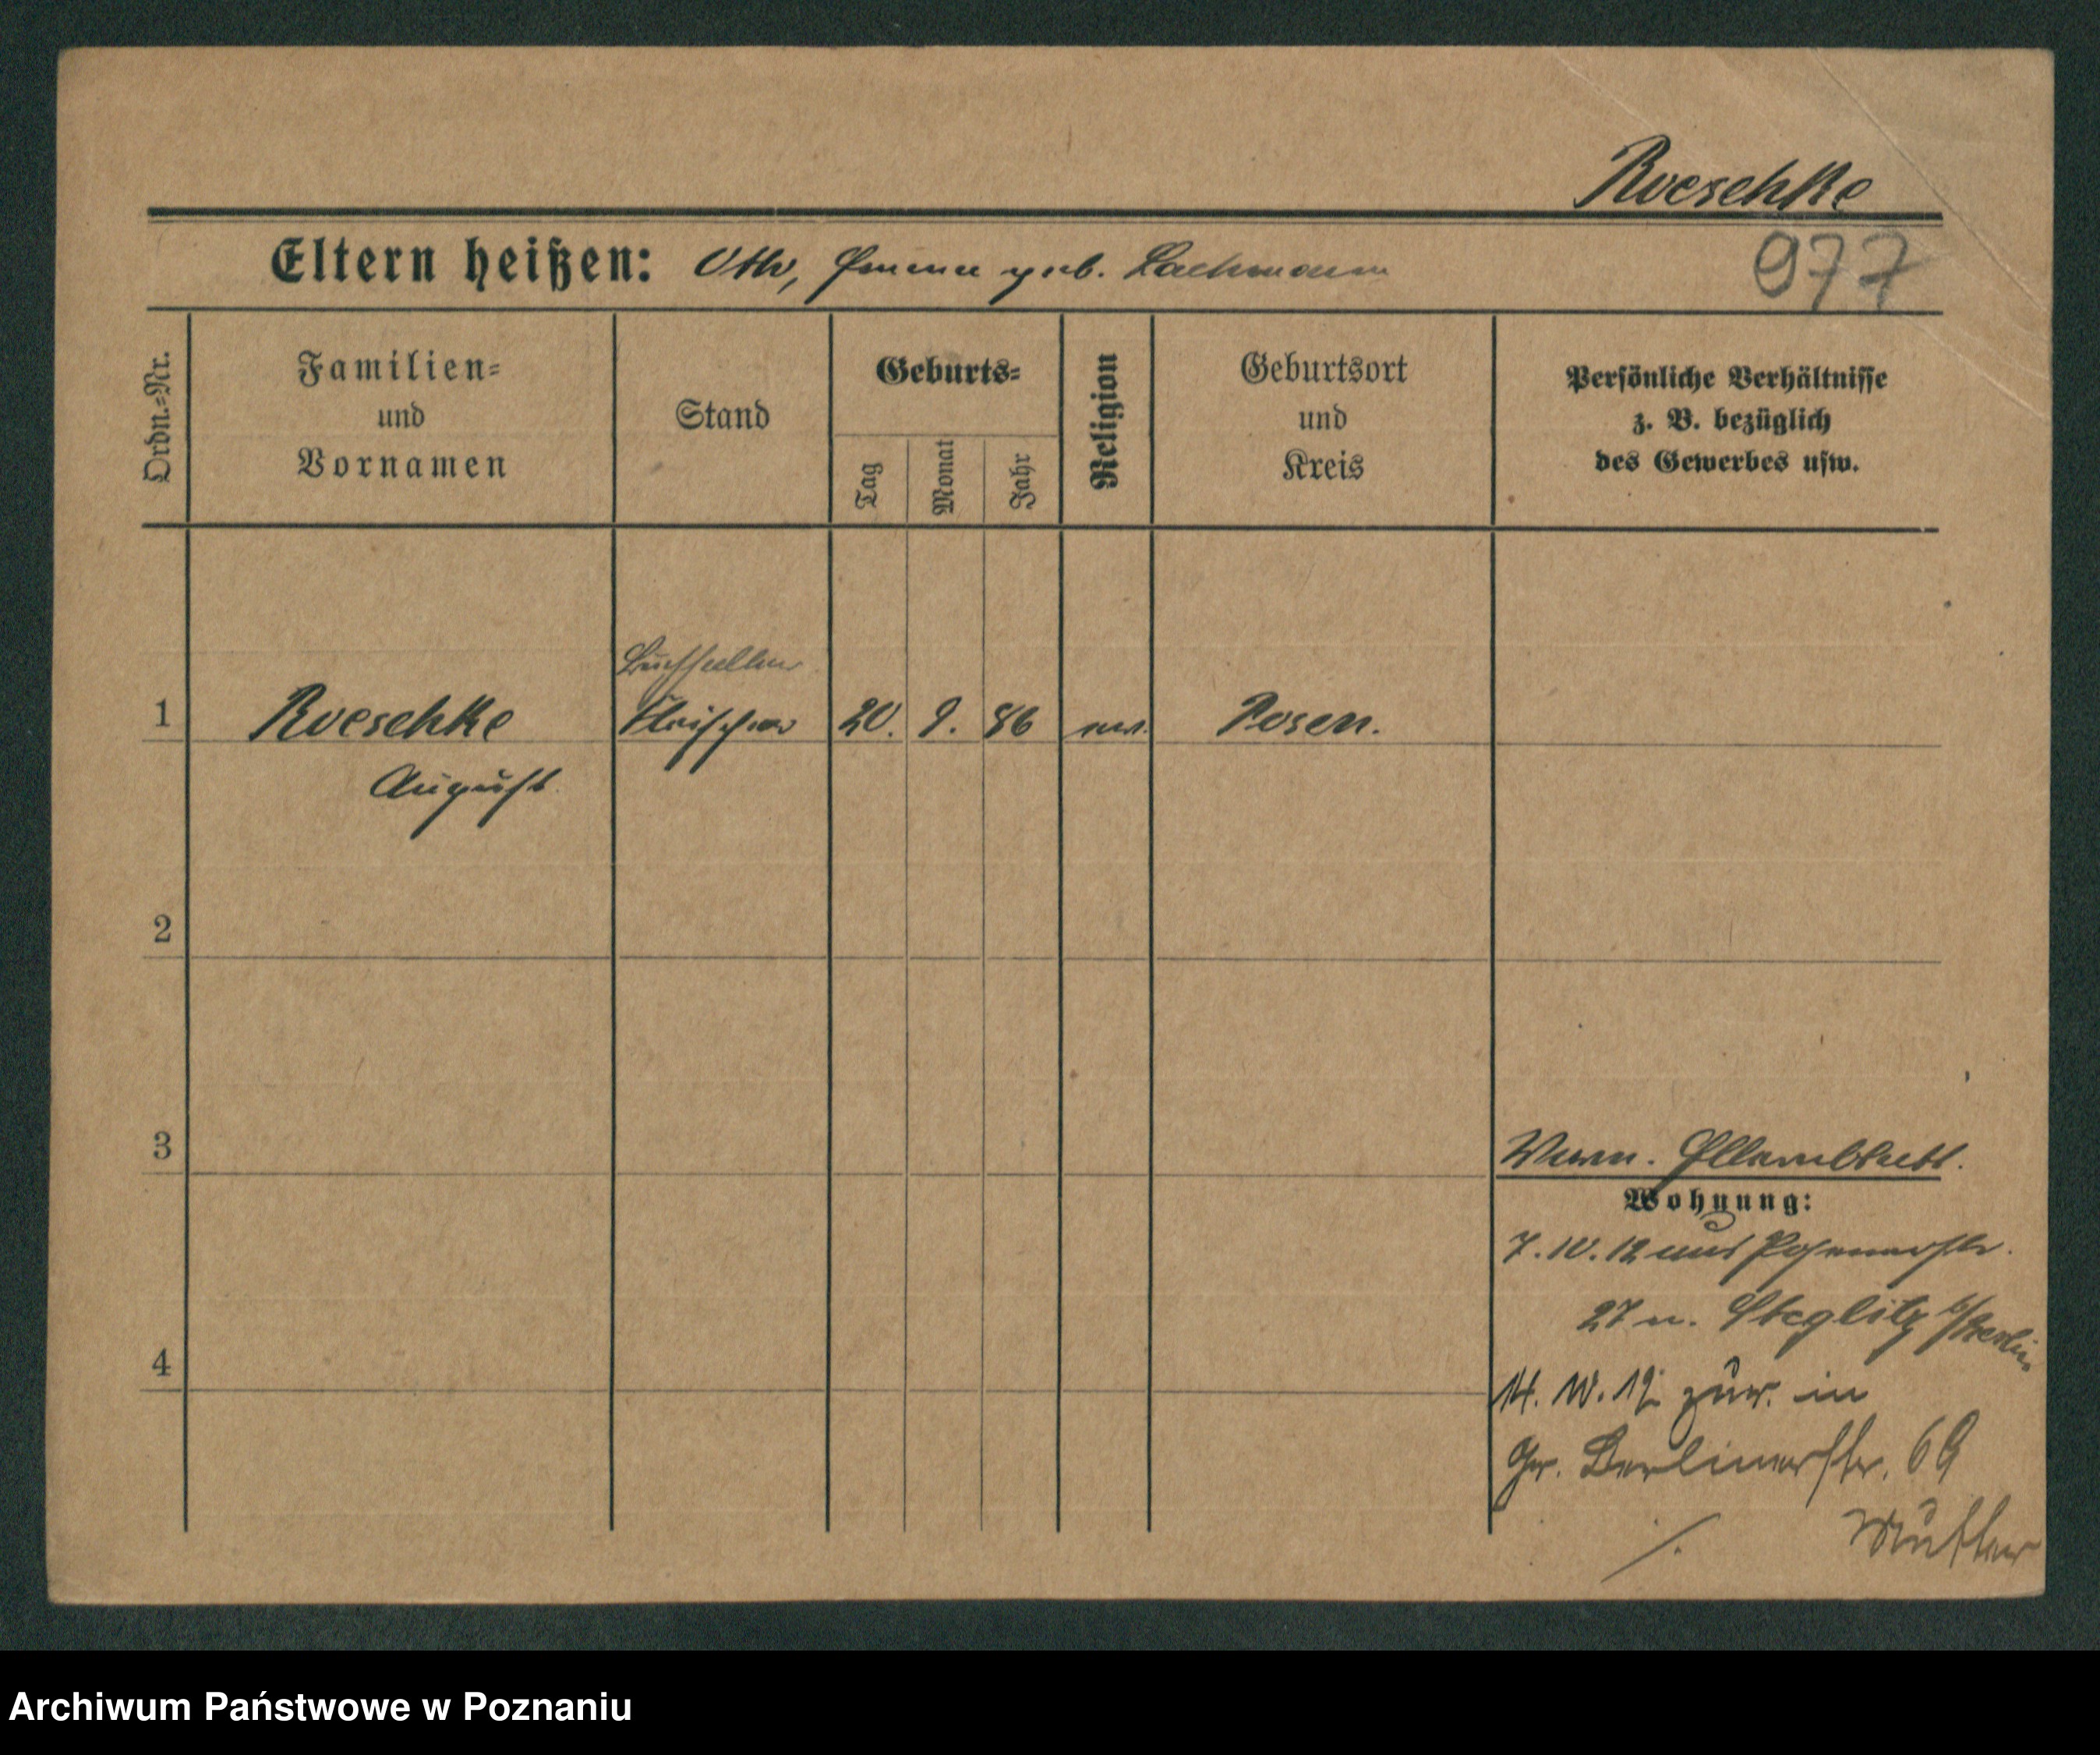 Roeschke
Eltern heißen: Otto, Emma geb. Lachmann
977
Ordn.-Nr.
Familien-
und
Vornamen
Stand
Geburts-
Tag
Monat
Jahr
Religion
Geburtsort
und
Kreis
Persönliche Verhältnisse
z. B. bezüglich
des Gewerbes usw.
1 Roeschke Fleischer 20. 9. 86 ev. Posen.
August
2
3
Wohnung:
7.10.12 aus Posenerstr.
27 n. Steglitz b/Berlin
4
14. 10. 12 zur. in
Gr. Berlinerstr. 69
Mutter
Archiwum Państwowe w Poznaniu